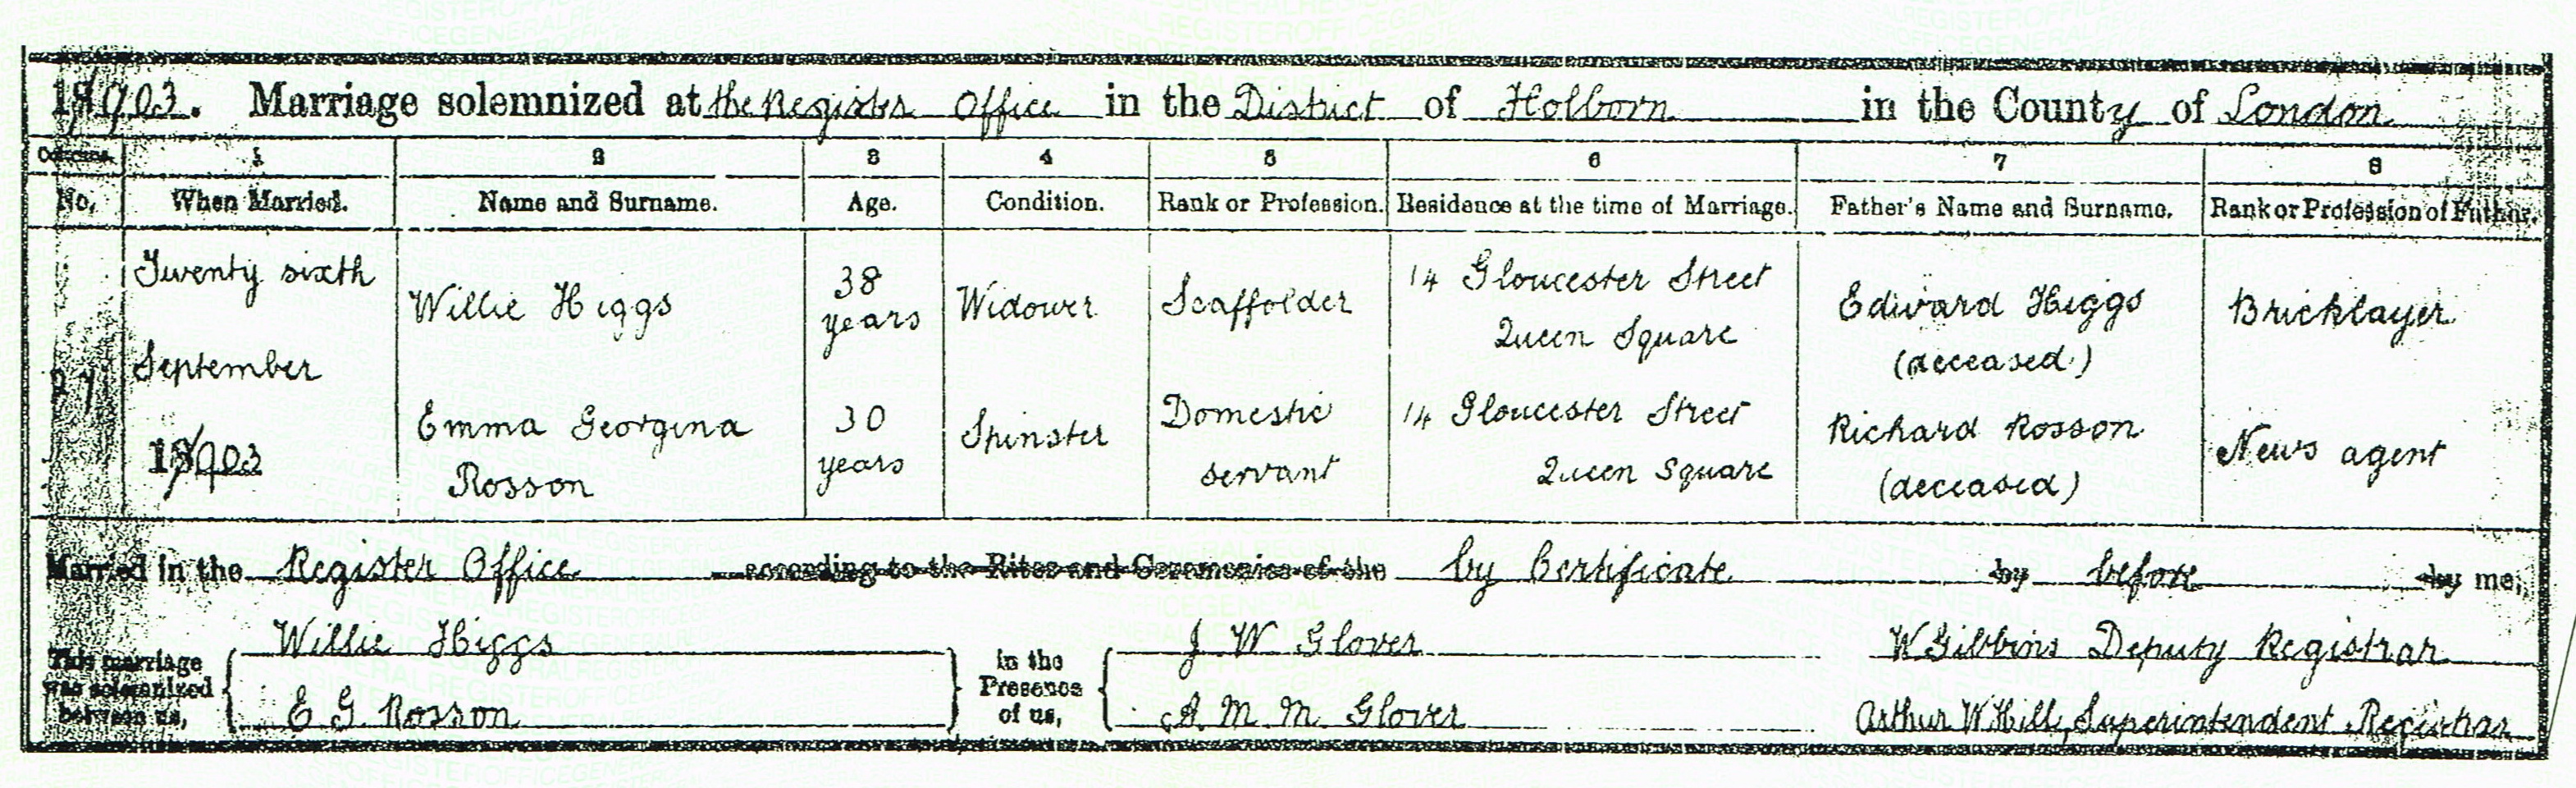 1903. Marriage solemnized at the Register Office in the District of Holborn in the County of London
Columns. 1 2 3 4 5 6 7 8
No. When Married. Name and Surname. Age. Condition. Rank or Profession. Residence at the time of Marriage. Father's Name and Surname. Rank or Profession of Father.
Twenty sixth
September
1903
27
Willie Higgs 38 years Widower Scaffolder 14 Gloucester Street Queen Square Edward Higgs (deceased) Bricklayer
Emma Georgina Rosson 30 years Spinster Domestic servant 14 Gloucester Street Queen Square Richard Rosson (deceased) News agent
Married in the Register Office according to the Rites and Ceremonies of the by Certificate by before by me,
This marriage was solemnized between us, Willie Higgs
E G Rosson
in the Presence of us, J W Glover
A M M Glover
W Gibbins Deputy Registrar
Arthur W Hill, Superintendent Registrar